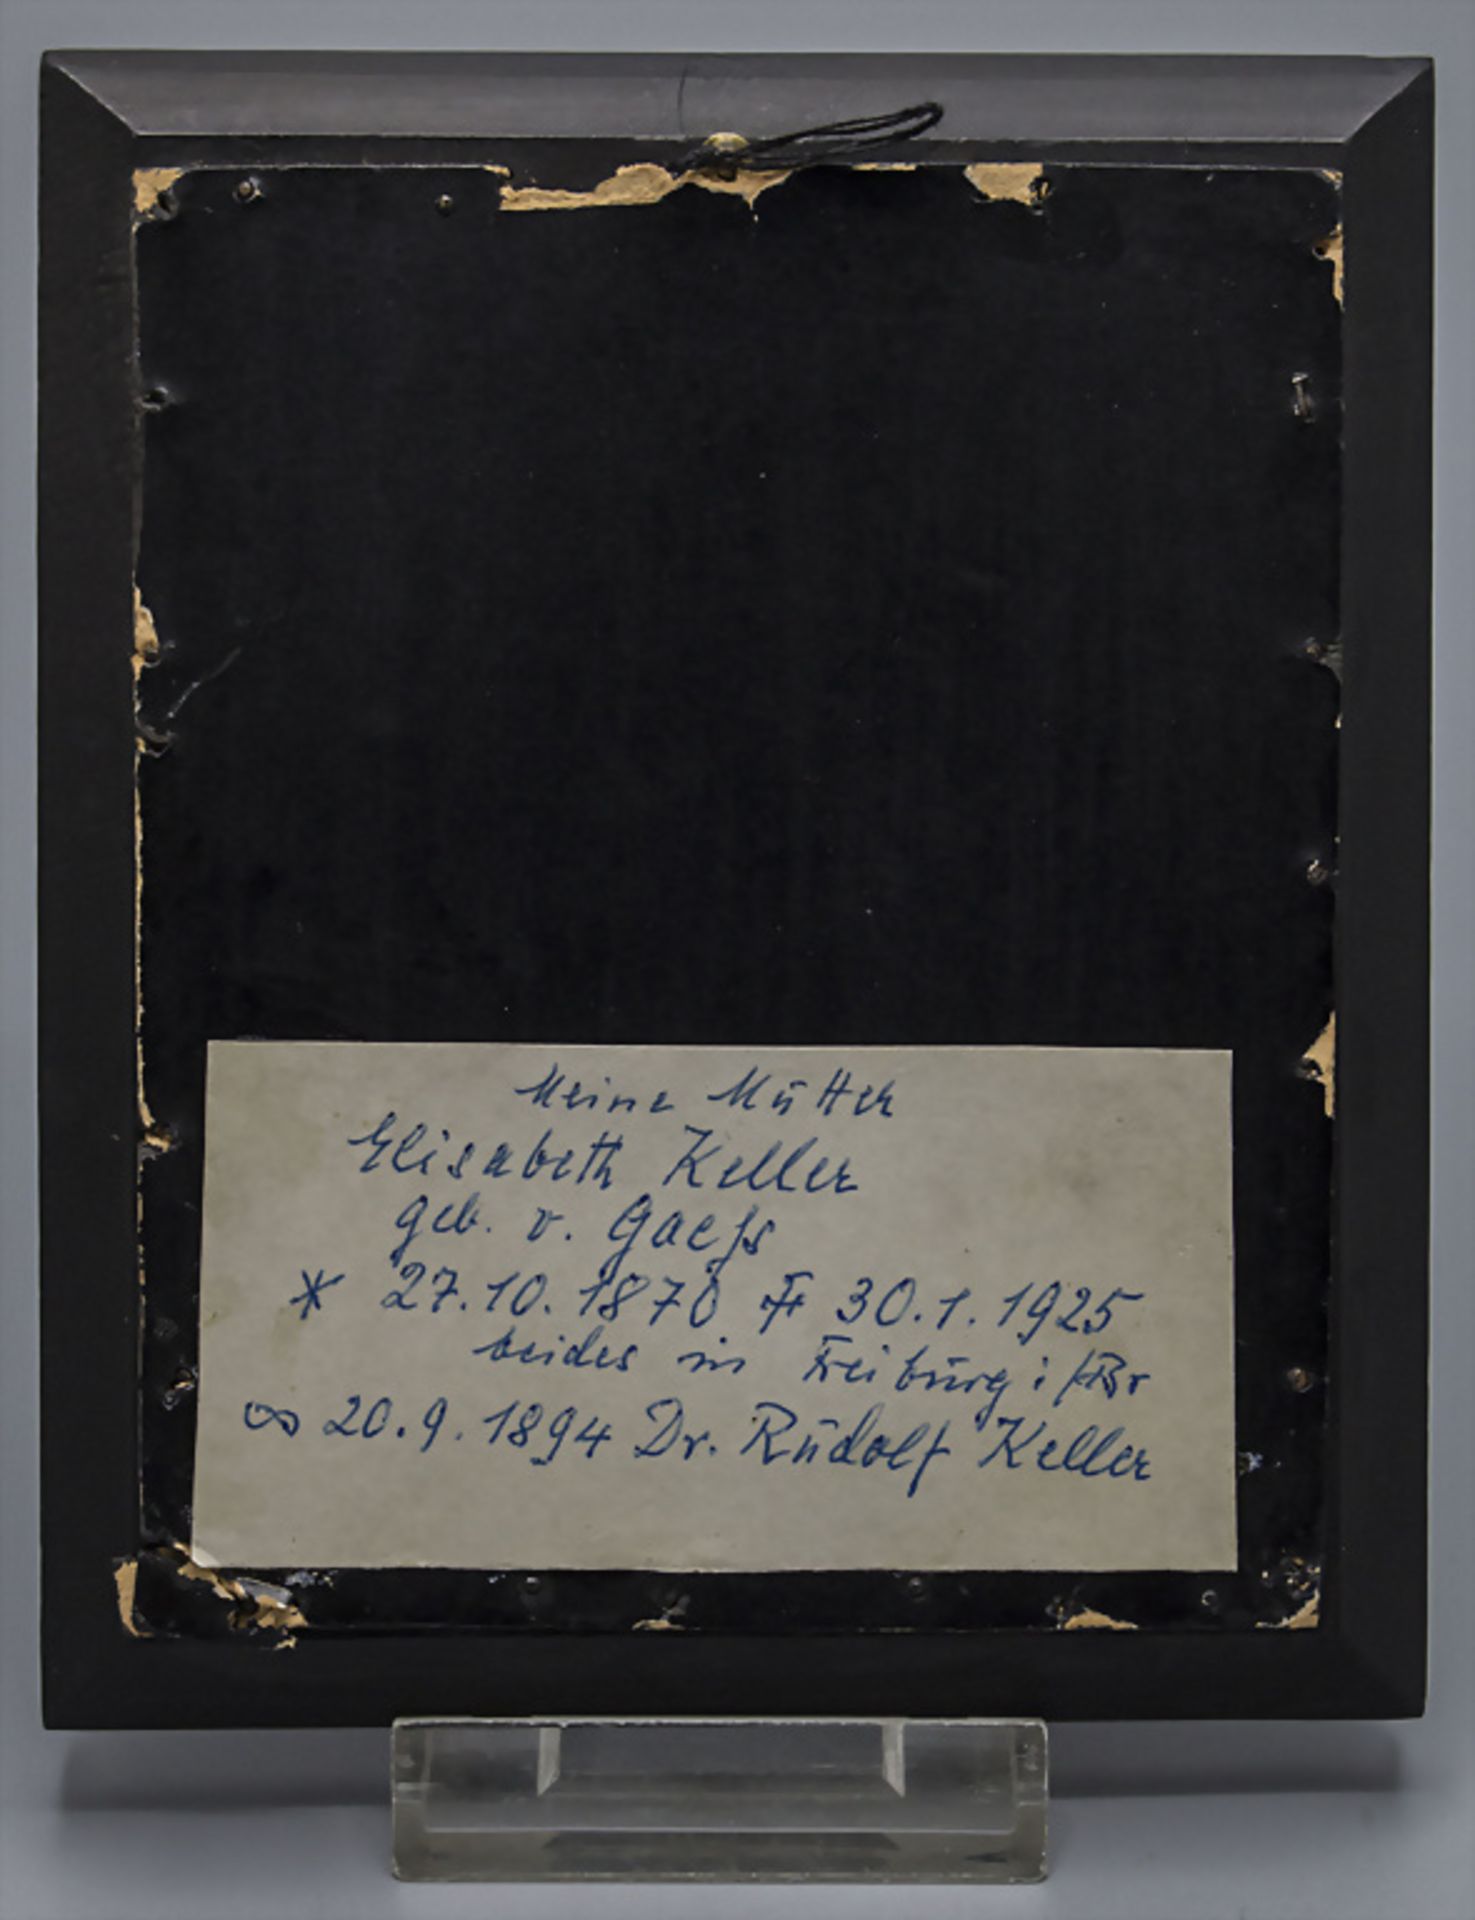 Meine Mutter
Elisabeth Keller
geb. v. Gaeſs
* 27.10.1870 ✝ 30.1.1925
beides in Freiburg i/Br
∞ 20.9.1894 Dr. Rudolf Keller